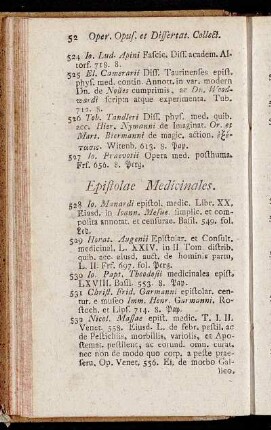 52 Oper. Opus. et Dissertat. Collect.
524 Io. Lud. Apini Fascic. Diss. academ. Al-
torf. 718. 8.
525 El. Camerarii Diss. Taurinenses epist.
phys. med. contin. Annot. in var. modern
Dn. de Nouës cumprimis, ac Dn. Wood-
wardi scripta atque experimenta. Tub.
712. 8.
526 Tob. Tandleri Diss. phys. med. quib.
acc. Hier. Nymanni de Imaginat. Or. et
Mart. Biermanni de magic. action. ἐξέ-
τασις. Witenb. 613. 8. Pap.
527 Io. Praevotii Opera med. posthuma.
Frf. 656. 8. Perg.
Epistolae Medicinales.
528 Io. Monardi epistol. medic. Libr. XX.
Eiusd. in Ioann. Mesue simplic. et com-
posita annotat. et censurae. Basil. 549. fol.
529 Horat. Augenii Epistolar. et Consult.
medicinal. L. XXIV. in II. Tom. distrib.
quib. acc. eiusd. auct. de hominis partu,
L. II. Frf. 697. fol. Perg.
530 Io. Papt. Theodosii medicinales epist.
LXVIII. Basil. 553. 8. Pap.
531 Christ. Frid. Garmanni epistolar. cen-
tur. e museo Imm. Henr. Garmanni. Ro-
stoch. et Lips. 714. 8. Pap.
532 Nicol. Massae epist. medic. T. I. II.
Venet. 558. Eiusd. L. de febr. pestil. ac
de Pestichiis, morbillis, variolis, et Apo-
stemat. pestilent; ac eorund. omn. curat.
nec non de modo quo corp. a peste prae-
serv. Op. Venet. 556. Ei. de morbo Gal-
lico.